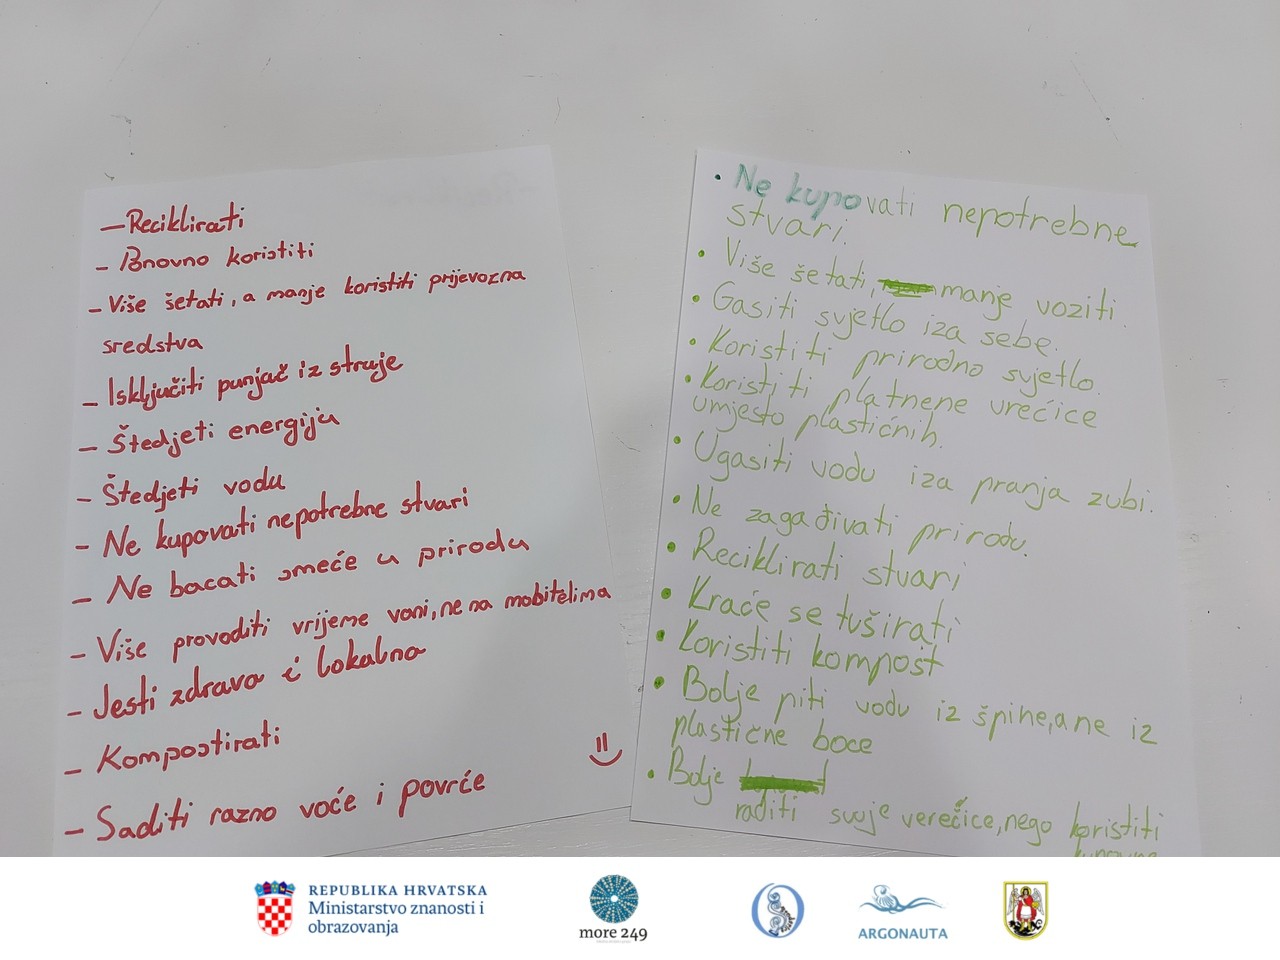 – Reciklirati
– Ponovno koristiti
– Više šetati, a manje koristiti prijevozna
sredstva
– Isključiti punjač iz struje
– Štedjeti energiju
– Štedjeti vodu
– Ne kupovati nepotrebne stvari
– Ne bacati smeće u prirodu
– Više provoditi vrijeme vani, ne na mobitelima
– Jesti zdravo i lokalno
– Kompostirati
– Saditi razno voće i povrće
• Ne kupovati nepotrebne
stvari.
• Više šetati, manje voziti.
• Gasiti svjetlo iza sebe.
• Koristiti prirodno svjetlo.
• Koristiti platnene vrećice
umjesto plastičnih.
• Ugasiti vodu iza pranja zubi.
• Ne zagađivati prirodu.
• Reciklirati stvari
• Kraće se tuširati
• Koristiti kompost
• Bolje piti vodu iz špine, a ne iz
plastične boce
• Bolje
raditi svoje verećice, nego koristiti
REPUBLIKA HRVATSKA
Ministarstvo znanosti i
obrazovanja
more 249
ARGONAUTA